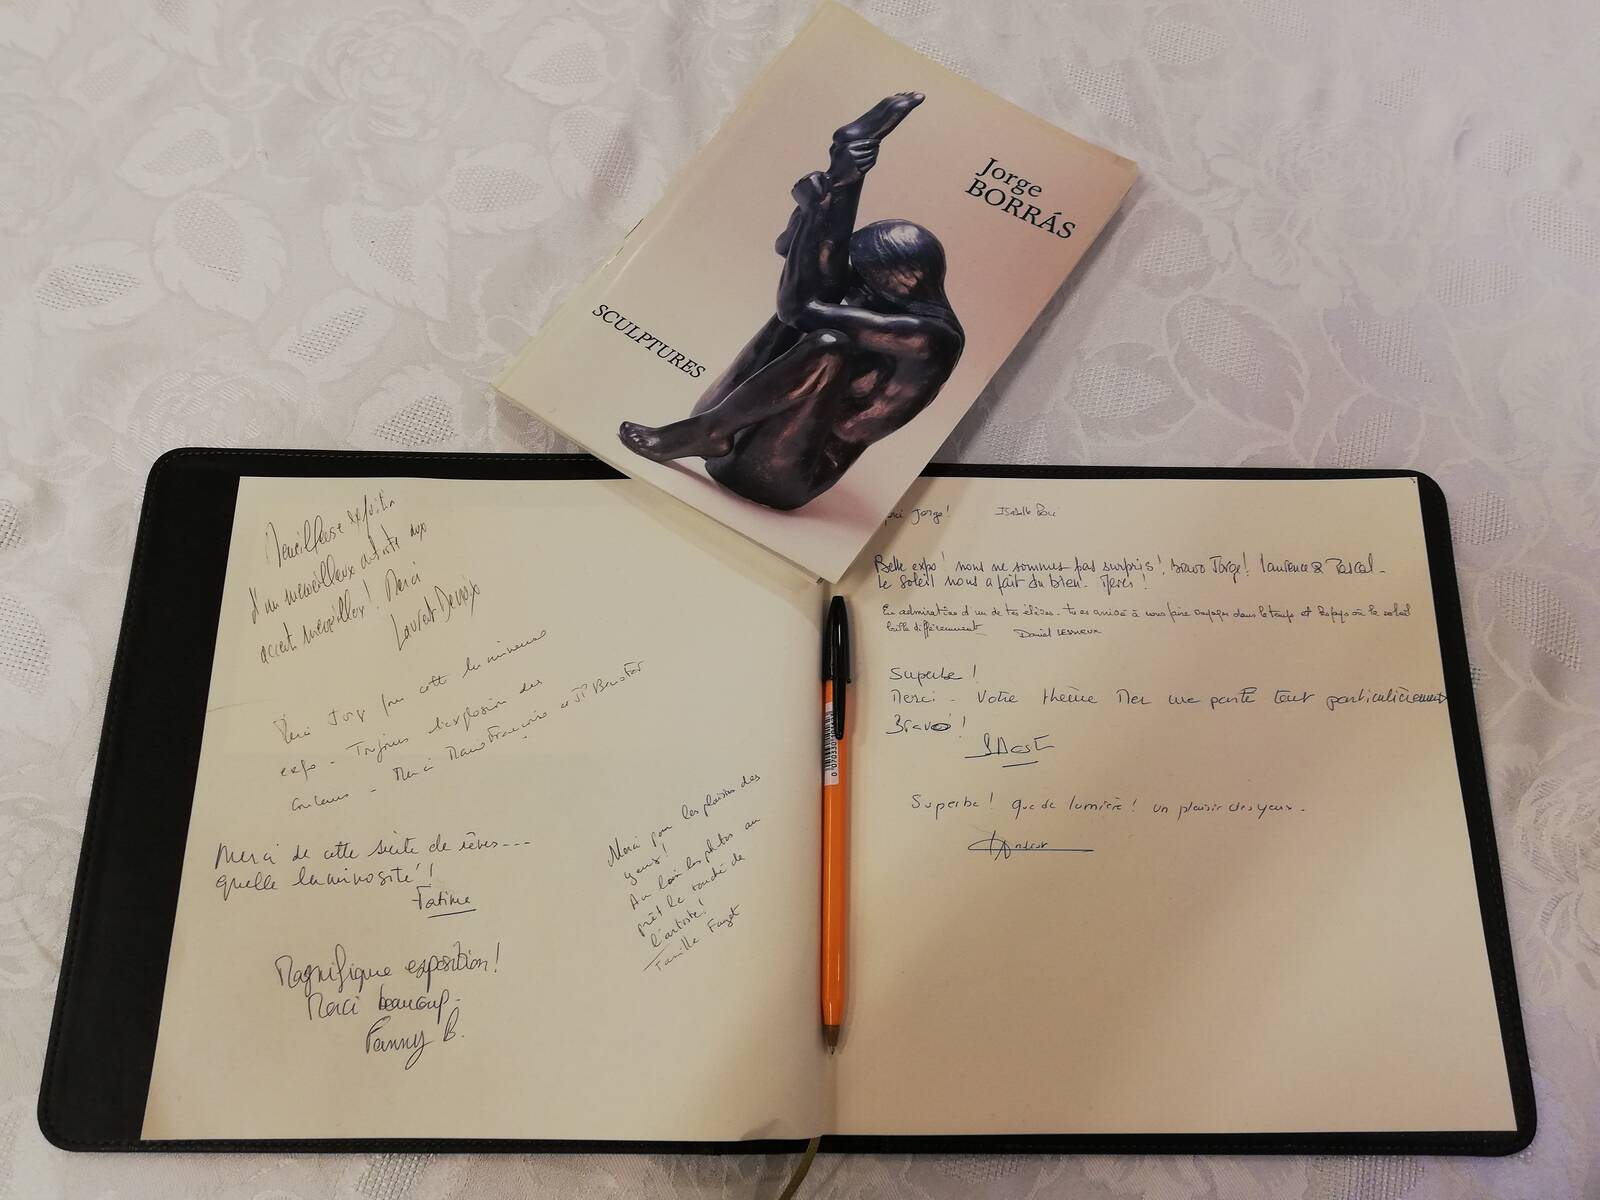 Jorge
BORRÁS
SCULPTURES
Merveilleuse exposition
d'un merveilleux artiste aux
accent merveilleux! Merci
Laurent
Merci Jorge pour cette lumineuse
expo - Toujours l'explosion des
couleurs - Merci Marie Françoise et JP
Merci de cette suite de rêves---
quelle luminosité!!
Fatima
Magnifique exposition!
Merci beaucoup.
Fanny B.
Merci pour les plaisirs des
yeux!
Au loin les photos au
prêt le touché de
l'artiste!
Famille Fayet
Jorge! Isabelle
Belle expo! nous ne sommes pas surpris! Bravo Jorge! Laurence & Pascal-
le soleil nous a fait du bien. Merci!
En admiration d'un de tes élèves. tu es arrivé à nous faire voyager dans le temps et les pays où le soleil
brille différemment Daniel
Superbe!
Merci - Votre thème Mer me parle tout particulièrement
Bravo!
Superbe! que de lumière! un plaisir des yeux.
070330